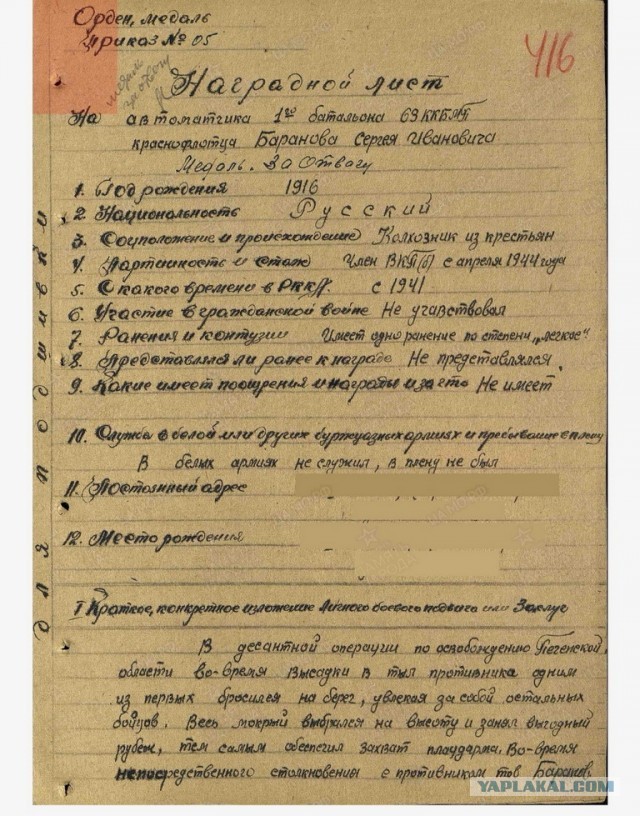 Орден, медаль
Приказ № 05
416
Наградной лист
На автоматчика 1го батальона 63 ККБМП
краснофлотца Баранова Сергея Ивановича
Медаль. За Отвагу
1. Год рождения 1916
2. Национальность Русский
3. Соцположение и происхождение Колхозник из крестьян
4. Партийность и стаж Член ВКП(б) с апреля 1944 года
5. С какого времени в РККА с 1941
6. Участие в гражданской войне Не учавствовал
7. Ранения и контузии Имеет одно ранение по степени „легкое"
8. Представлялся ли ранее к награде Не представлялся.
9. Какие имеет поощрения и награды и за что Не имеет
10. Служба в белой или других буржуазных армиях и пребывание в плену
В белых армиях не служил, в плену не был
11. Постоянный адрес
12. Место рождения
Для подшивки
I Краткое, конкретное изложение личного боевого подвига или заслуг
В десантной операции по освобождению Печенской
области во-время высадки в тыл противника одним
из первых бросился на берег, увлекая за собой остальных
бойцов. Весь мокрый выбрался на высоту и занял выгодный
рубеж, тем самым обеспечил захват плацдарма. Во-время
непосредственного столкновения с противником тов Баранов,
YAPLAKAL.COM